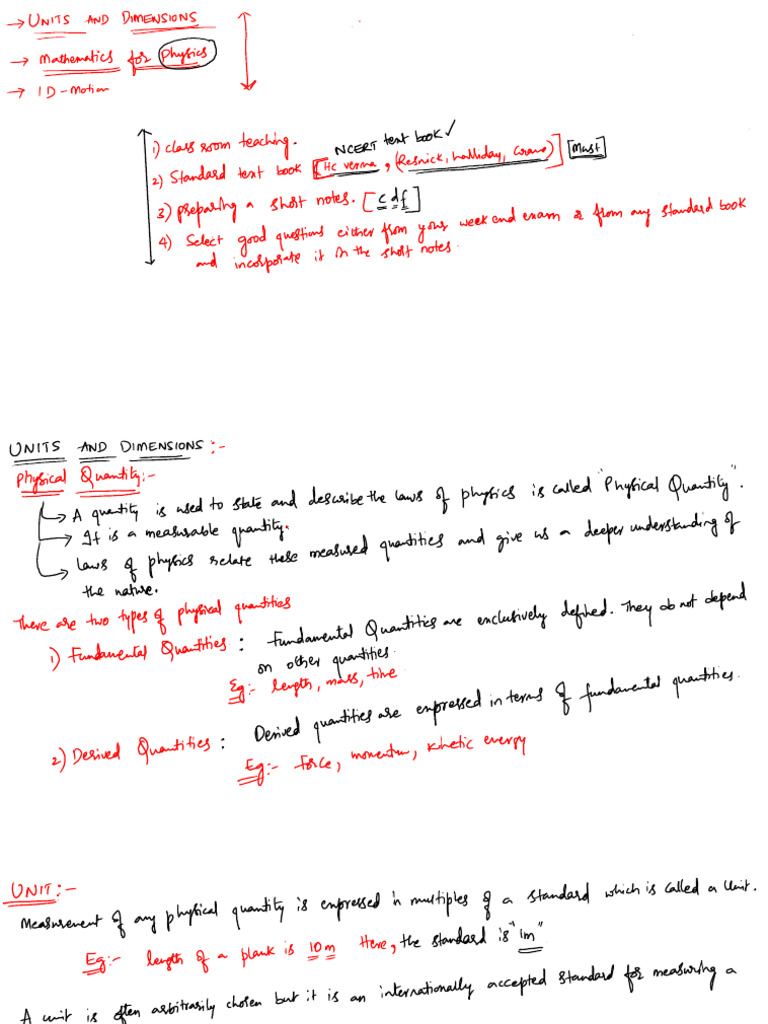 → UNITS AND DIMENSIONS
→ Mathematics for Physics
→ 1D-Motion
1) Class room teaching.
NCERT text book ✓
2) Standard text book [HC Verma, (Resnick, Halliday, Crane)] [Must]
3) preparing a short notes. [c d f]
4) Select good questions either from your week end exam & from any standard book
and incorporate it in the short notes.
UNITS AND DIMENSIONS:-
Physical Quantity:-
→ A quantity is used to state and describe the laws of physics is called "Physical Quantity".
→ It is a measurable quantity.
→ Laws of physics relate these measured quantities and give us a deeper understanding of
the nature.
There are two types of physical quantities
1) Fundamental Quantities : Fundamental Quantities are exclusively defined. They do not depend
on other quantities.
Eg:- length, mass, time
2) Derived Quantities : Derived quantities are expressed in terms of fundamental quantities.
Eg:- force, momentum, kinetic energy
UNIT:-
Measurement of any physical quantity is expressed in multiples of a standard which is called a unit.
Eg:- length of a plank is 10m Here, the standard is "1m"
A unit is often arbitrarily chosen but it is an internationally accepted standard for measuring a